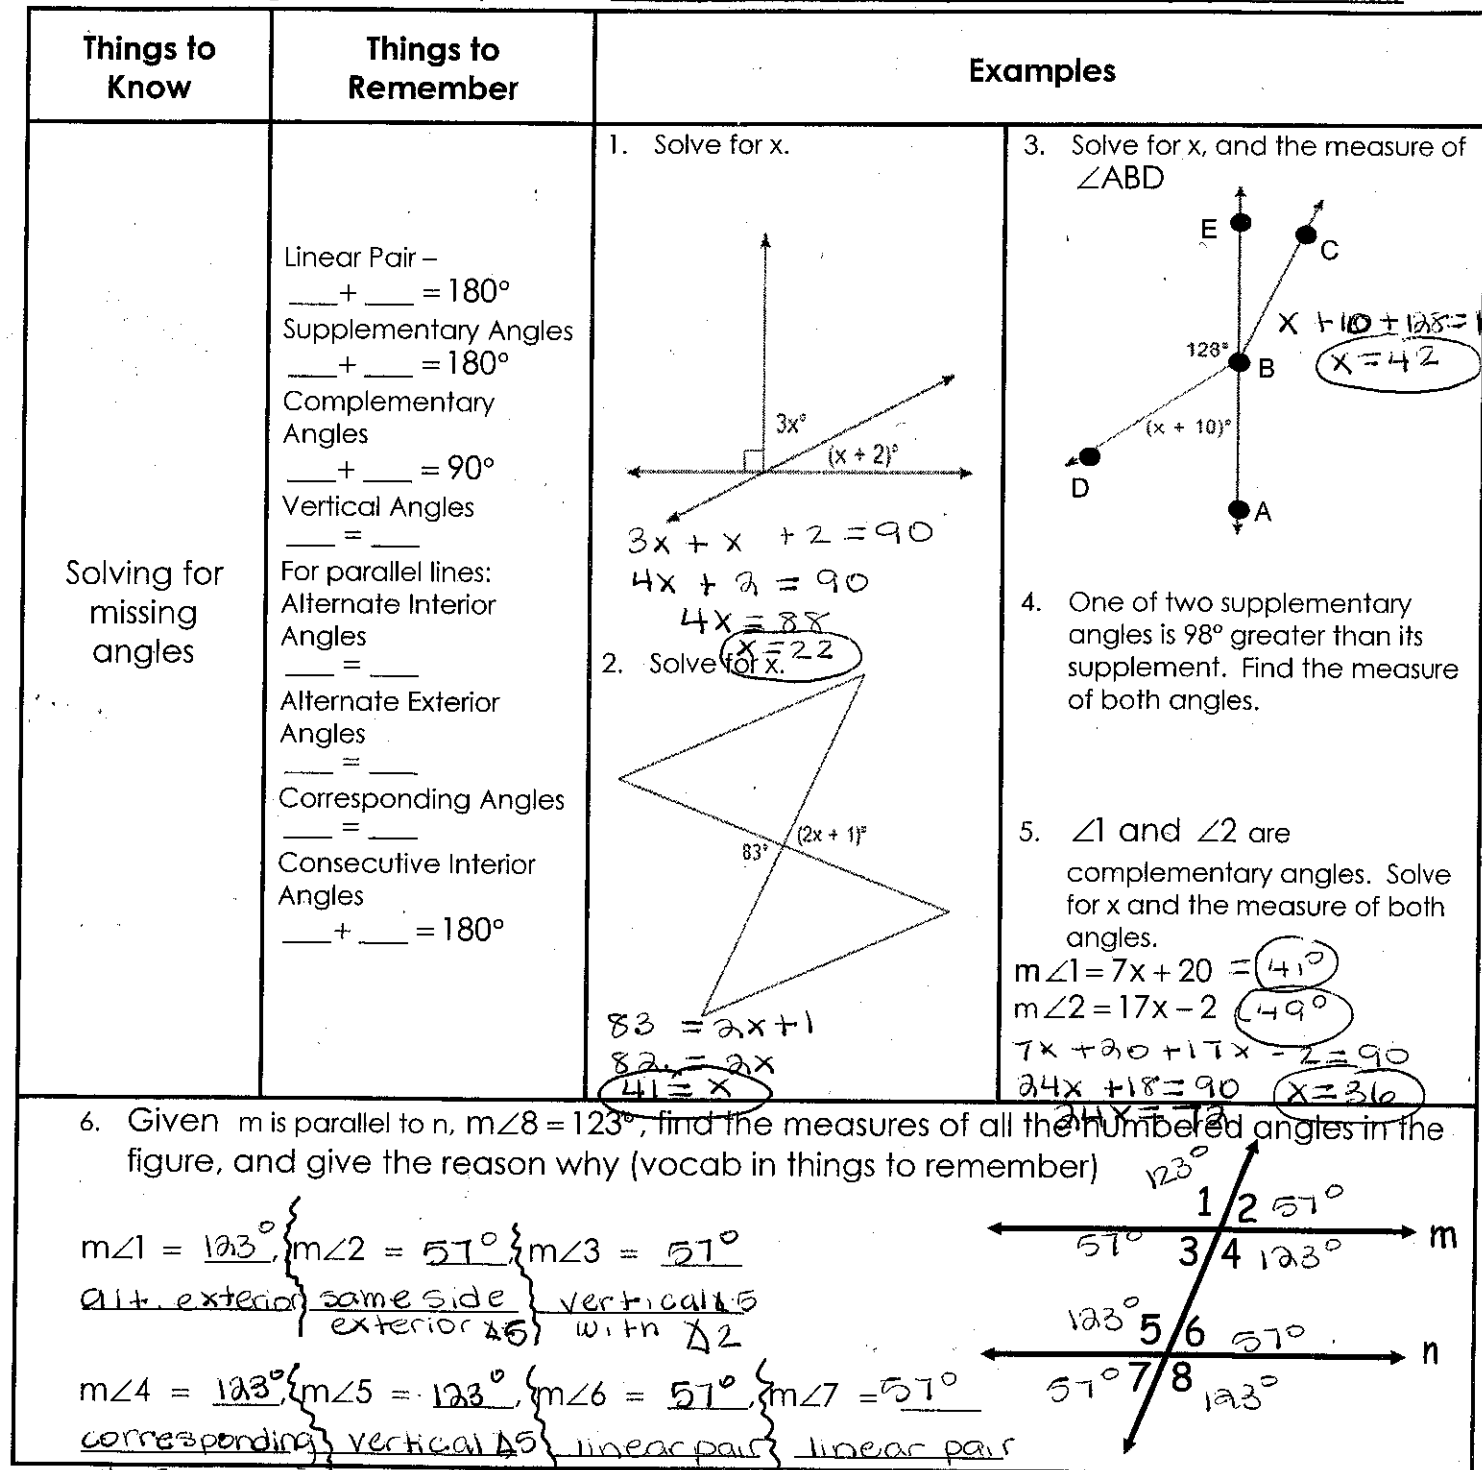 Things to
Know
Things to
Remember
Examples
Solving for
missing
angles
Linear Pair –
___+ ___ = 180°
Supplementary Angles
___+ ___ = 180°
Complementary
Angles
___+ ___ = 90°
Vertical Angles
___ = ___
For parallel lines:
Alternate Interior
Angles
___ = ___
Alternate Exterior
Angles
___ = ___
Corresponding Angles
___ = ___
Consecutive Interior
Angles
___+ ___ = 180°
1. Solve for x.
3x°
(x + 2)°
3x + x + 2 = 90
4x + 2 = 90
4x = 88
x = 22
2. Solve for x.
(2x + 1)°
83°
83 = 2x+1
82 = 2x
41 = x
3. Solve for x, and the measure of
∠ABD
E
C
x +10 + 128 = 1
128°
B
x = 42
(x + 10)°
D
A
4. One of two supplementary
angles is 98° greater than its
supplement. Find the measure
of both angles.
5. ∠1 and ∠2 are
complementary angles. Solve
for x and the measure of both
angles.
m∠1 = 7x + 20 = 41°
m∠2 = 17x – 2 49°
7x +20 +17x - 2 = 90
24x +18 = 90 x = 36
24x = 72
6. Given m is parallel to n, m∠8 = 123°, find the measures of all the numbered angles in the
figure, and give the reason why (vocab in things to remember)
m∠1 = 123°, m∠2 = 57°, m∠3 = 57°
alt. exterior same side vertical ∠s
exterior ∠s with ∠2
m∠4 = 123°, m∠5 = 123°, m∠6 = 57°, m∠7 = 57°
corresponding vertical ∠s linear pair linear pair
123°
1 2 57°
m
57° 3 4 123°
123° 5 6 57°
n
57° 7 8 123°